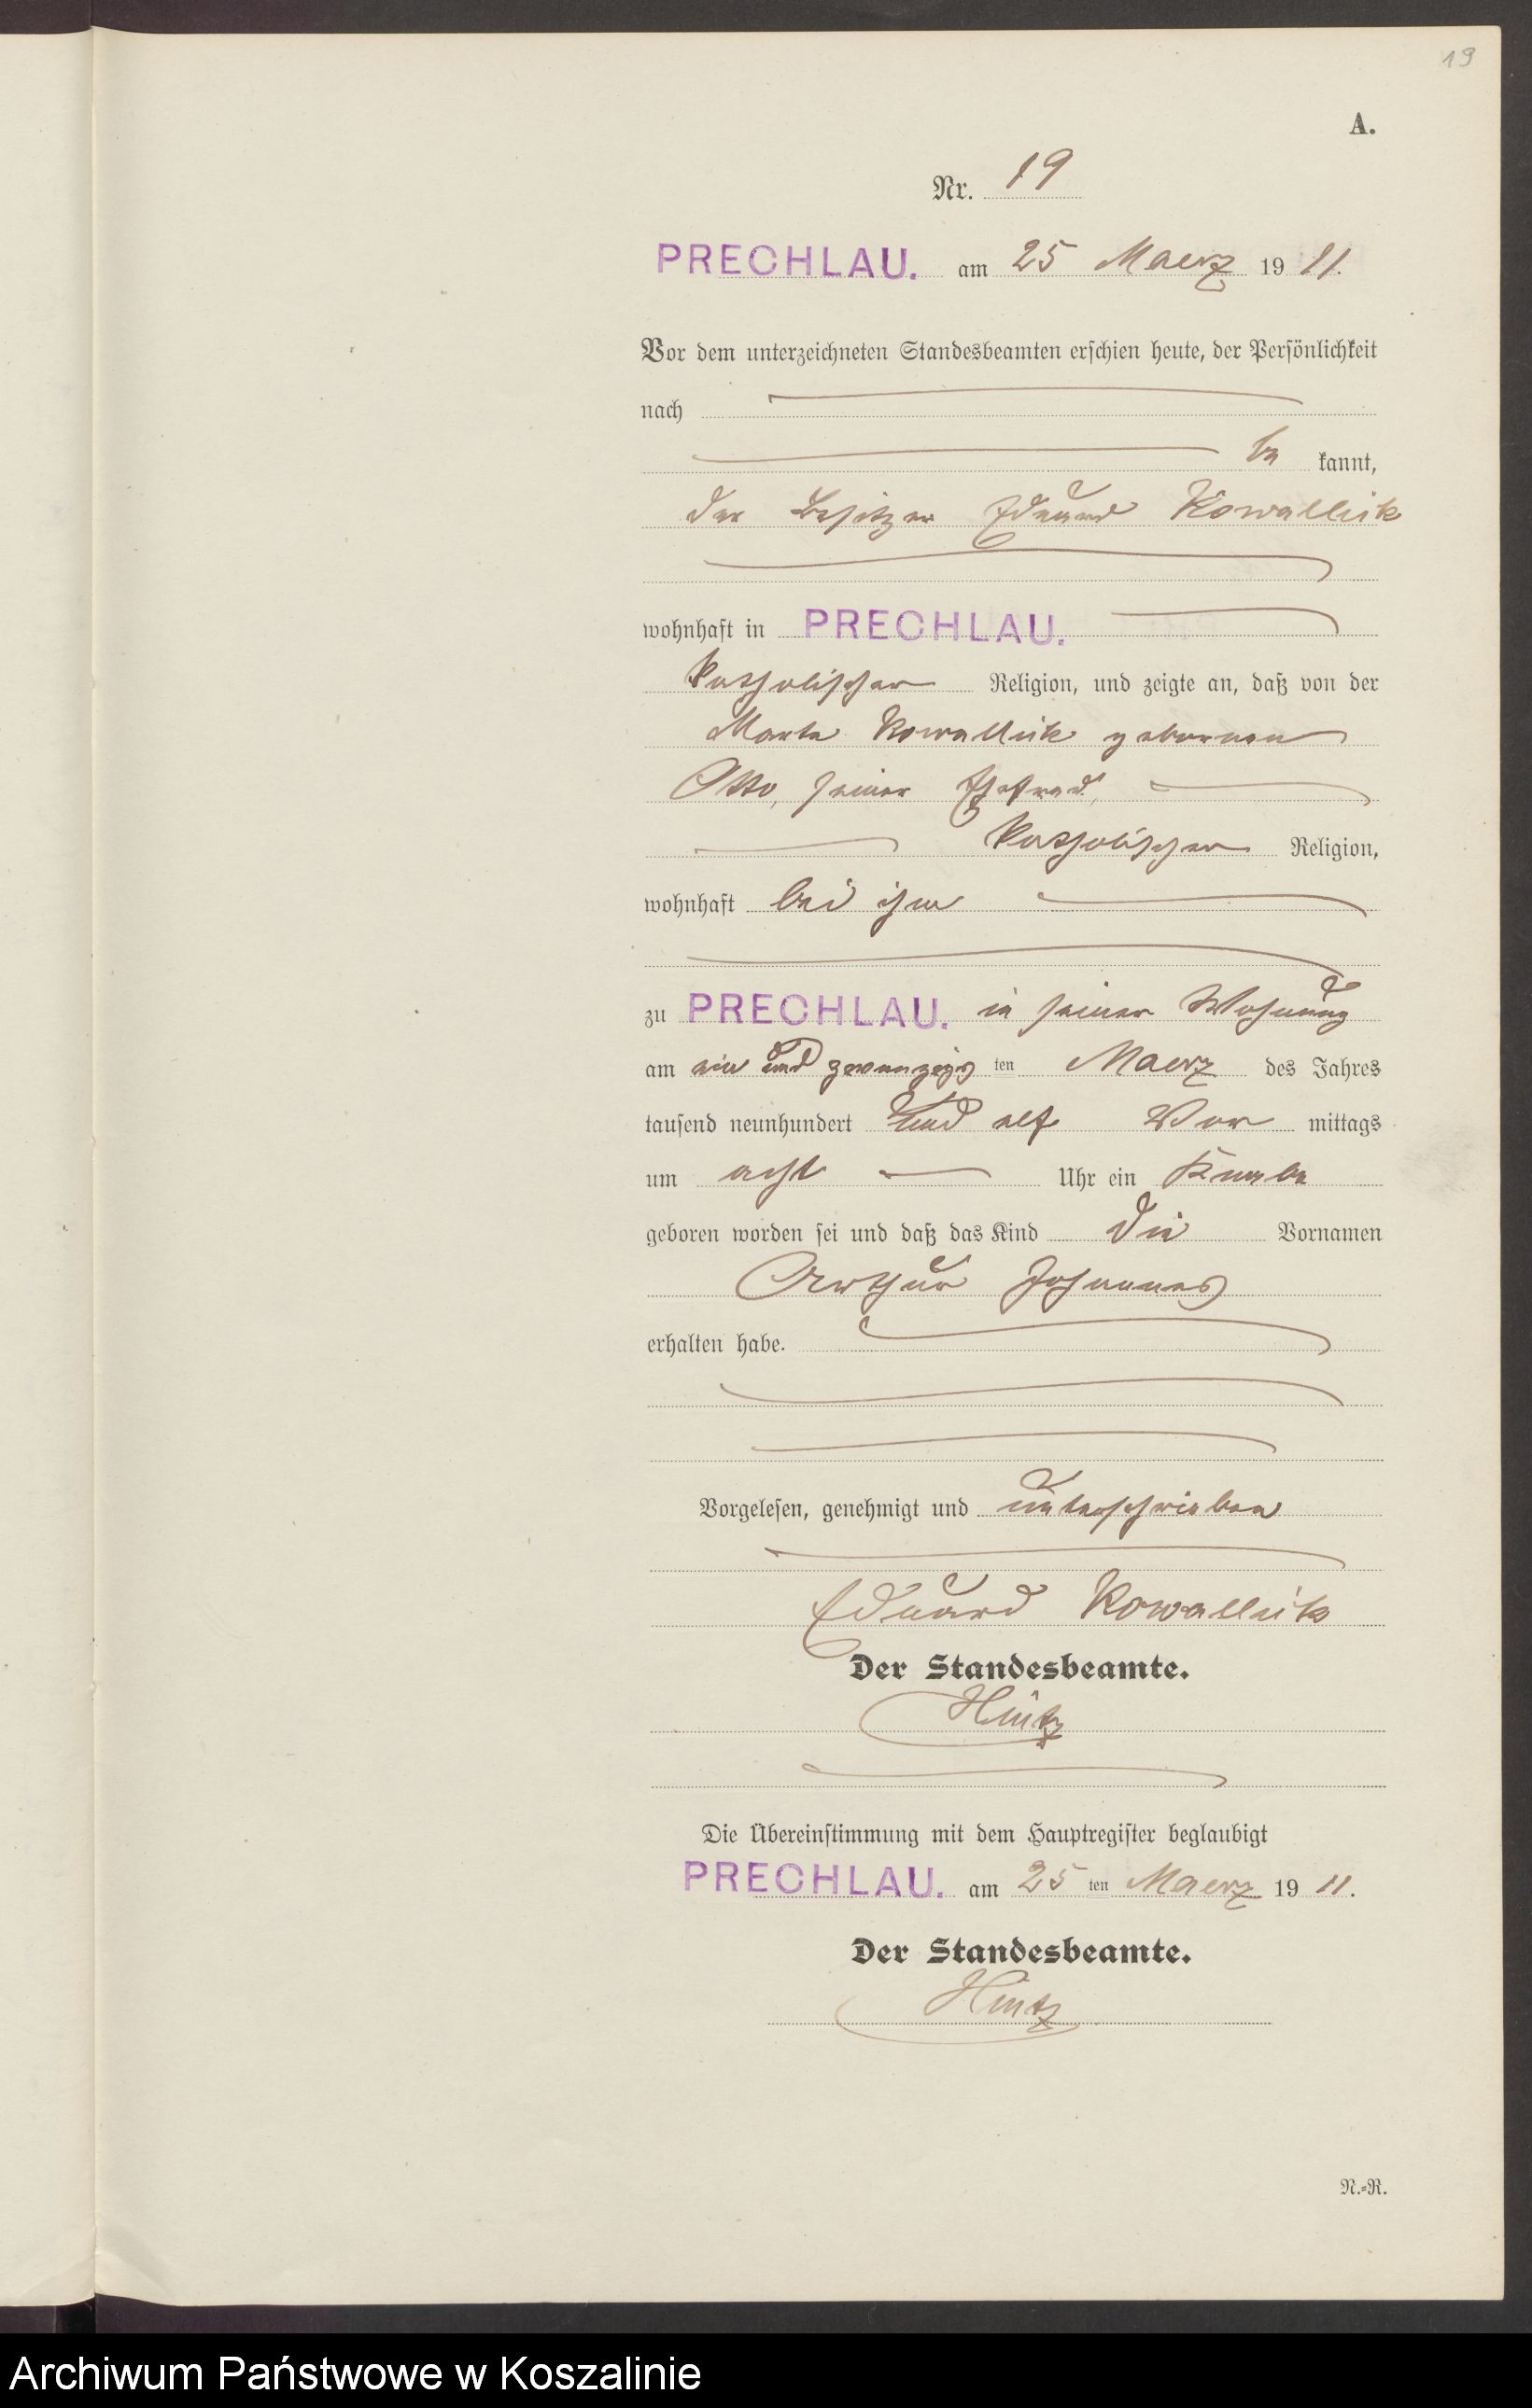 19
A.
Nr. 19
PRECHLAU. am 25 Maerz 19 11.
Vor dem unterzeichneten Standesbeamten erschien heute, der Persönlichkeit
nach
be kannt,
der Besitzer Eduard Kowallik
wohnhaft in PRECHLAU.
katholischer Religion, und zeigte an, daß von der
Marta Kowallik geborenen
Otto, seiner Ehefrau,
katholischer Religion,
wohnhaft bei ihm
zu PRECHLAU. in seiner Wohnung
am ein und zwanzigs ten Maerz des Jahres
tausend neunhundert und elf Vor mittags
um acht Uhr ein Knabe
geboren worden sei und daß das Kind die Vornamen
Arthur Johannes
erhalten habe.
Vorgelesen, genehmigt und unterschrieben
Eduard Kowallik
Der Standesbeamte.
Hintz
Die Übereinstimmung mit dem Hauptregister beglaubigt
PRECHLAU. am 25 ten Maerz 19 11.
Der Standesbeamte.
Hintz
N.=R.
Archiwum Państwowe w Koszalinie